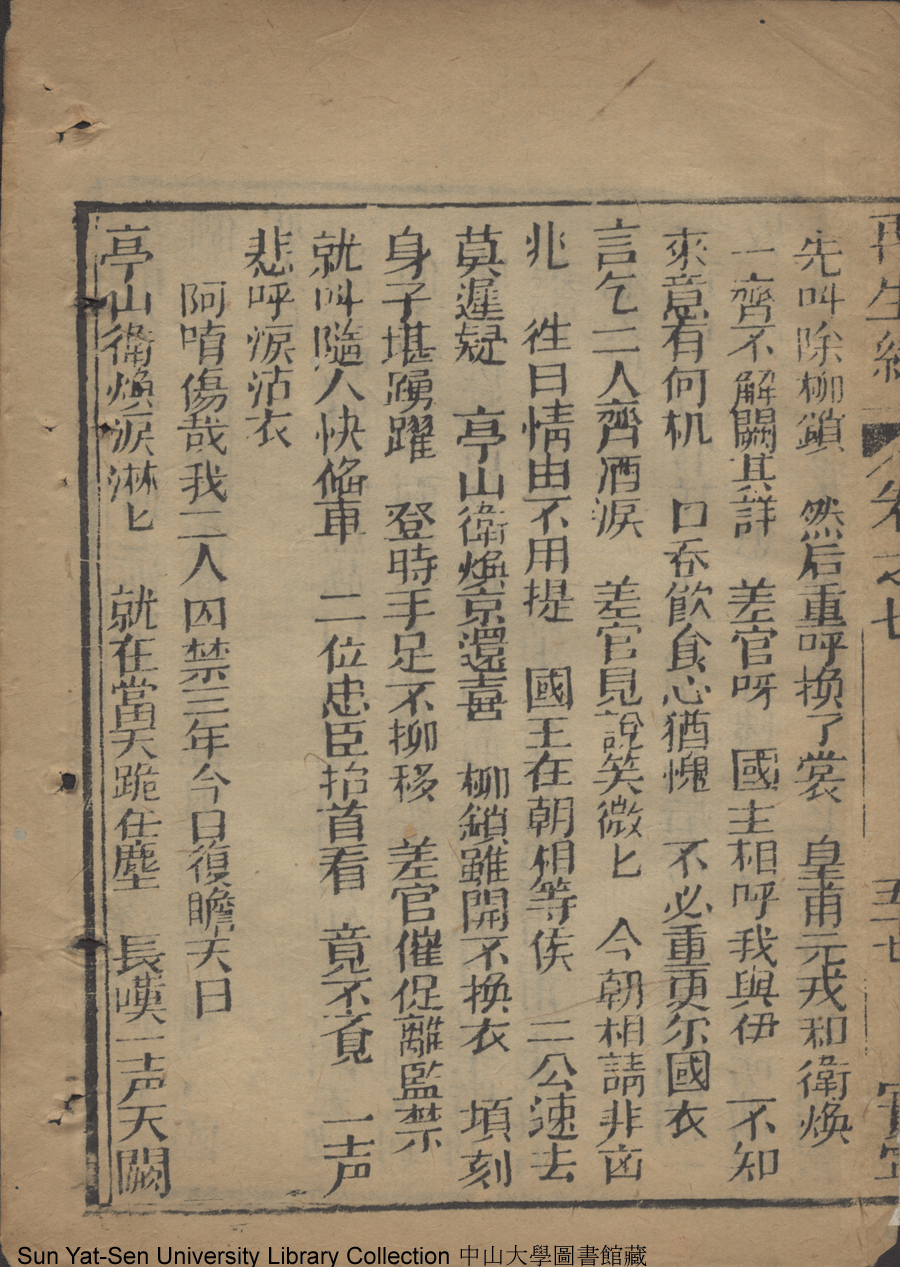 再生緣 卷之七 五七
先叫除柳鎖 然后重呼換了裳 皇甫元戎和衛煥
一齊不解闕其詳 差官呀 國主相呼我與伊 不知
來意有何机 口吞飲食心猶愧 不必重更尔國衣
言乞二人齊洒淚 差官見說笑微匕 今朝相請非凶
兆 徃日情由不用提 國王在朝相等俟 二公速去
莫遲疑 亭山衛煥京還喜 柳鎖雖開不換衣 塤刻
身子堪踴躍 登時手足不挪移 差官催促離監禁
就叫隨人快俻車 二位忠臣抬首看 竟不覔 一声
悲呼淚沾衣
阿唷傷哉我二人囚禁三年今日復瞻天日
亭山衛煥淚淋匕 就在當天跪在塵 長嘆一声天闕
Sun Yat-Sen University Library Collection 中山大學圖書館藏